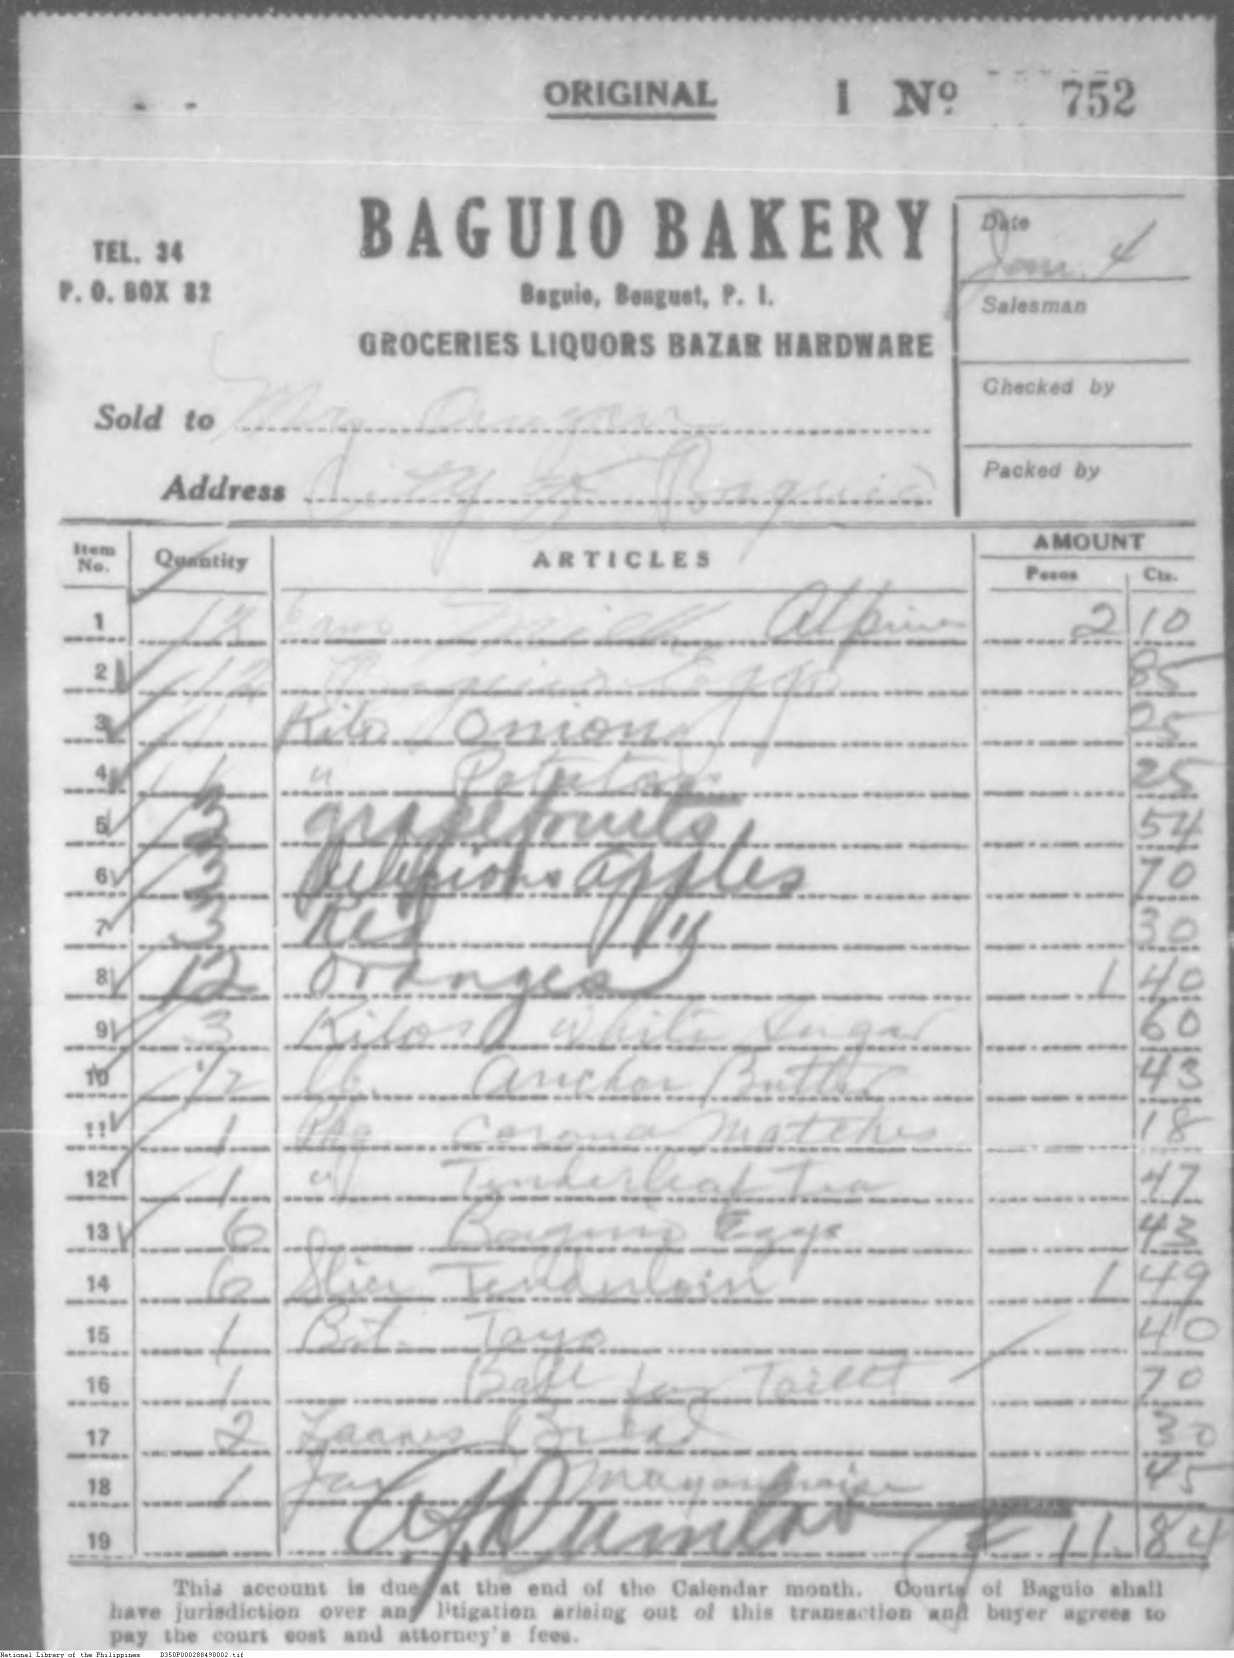 ORIGINAL I Nº 752
BAGUIO BAKERY
TEL. 34
P. O. BOX 82
Baguio, Benguet, P. I.
GROCERIES LIQUORS BAZAR HARDWARE
Date Jan. 4
Salesman
Checked by
Packed by
Sold to
Address City of Baguio
Item No. Quantity ARTICLES AMOUNT
Pesos Cts.
1 12 Cans Milk Alpine 2 10
2 12 Baguio Eggs 85
3 1 Kilo Onions 25
4 1 " Potatoes 25
5 3 grapefruits 54
6 3 apples 70
7 3 Red " 30
8 12 Oranges 1 40
9 3 Kilos White Sugar 60
10 1/2 lb. Anchor Butter 43
11 1 Pkg Corona Matches 18
12 1 " Tenderleaf Tea 47
13 6 Baguio Eggs 43
14 6 Slice Tenderloin 1 49
15 1 Bot. Toyo 40
16 1 Ball for Toilet 70
17 2 Loaves Bread 30
18 1 Jar Mayonnaise 45
19 ₱ 11.84
This account is due at the end of the Calendar month. Courts of Baguio shall
have jurisdiction over any litigation arising out of this transaction and buyer agrees to
pay the court cost and attorney's fees.
National Library of the Philippines D350P000288498002.tif